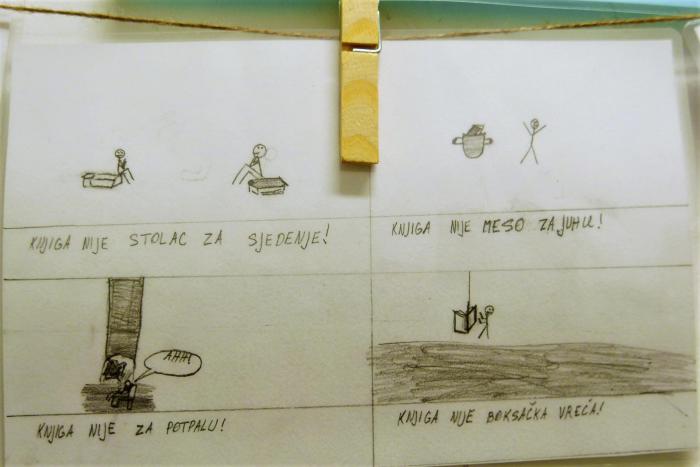 KNJIGA NIJE STOLAC ZA SJEDENJE!
KNJIGA NIJE MESO ZA JUHU!
AHH!
KNJIGA NIJE ZA POTPALU!
KNJIGA NIJE BOKSAČKA VREĆA!